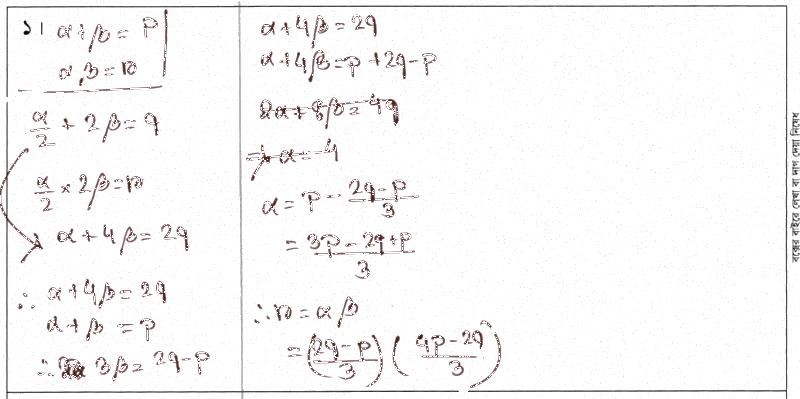 ১। α+β = P
αβ = r
α/2 + 2β = q
α/2 × 2β = r
α + 4β = 2q
∴ α+4β = 2q
α+β = P
∴ 3β = 2q-P
α+4β = 2q
α+4β = P + 2q-P
2α+8β = 4q
α = -4
α = P - (2q-P)/3
= (3P-2q+P)/3
∴ r = αβ
= ((2q-P)/3) ((4P-2q)/3)
বক্সের বাইরে লেখা বা দাগ দেয়া নিষেধ